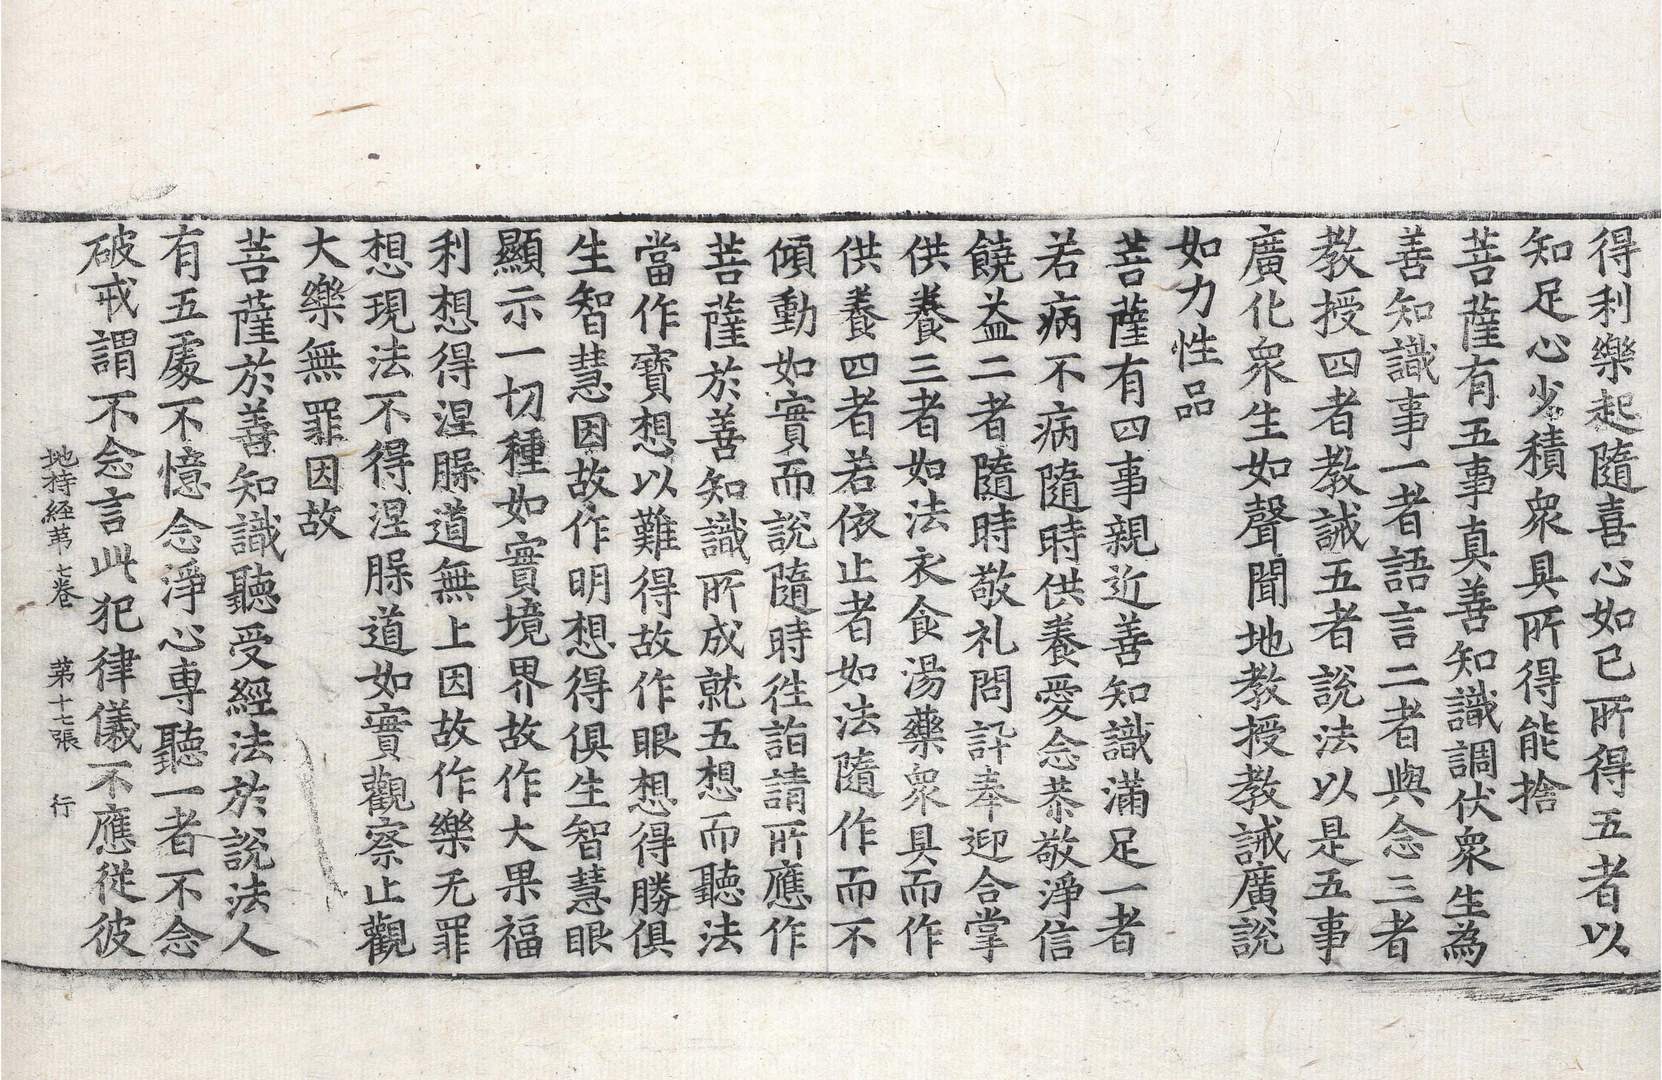 得利樂起隨喜心如已所得五者以
知足心少積衆具所得能捨
菩薩有五事真善知識調伏衆生為
善知識事一者語言二者與念三者
教授四者教誡五者說法以是五事
廣化衆生如聲聞地教授教誡廣說
如力性品
菩薩有四事親近善知識滿足一者
若病不病隨時供養愛念恭敬淨信
饒益二者隨時敬礼問訊奉迎合掌
供養三者如法衣食湯藥衆具而作
供養四者若依止者如法隨作而不
傾動如實而說隨時往詣請所應作
菩薩於善知識所成就五想而聽法
當作寶想以難得故作眼想得勝俱
生智慧因故作明想得俱生智慧眼
顯示一切種如實境界故作大果福
利想得涅槃道無上因故作樂无罪
想現法不得涅槃道如實觀察止觀
大樂無罪因故
菩薩於善知識聽受經法於說法人
有五處不憶念淨心專聽一者不念
破戒謂不念言此犯律儀不應從彼
地持経苐七卷 第十七張 行